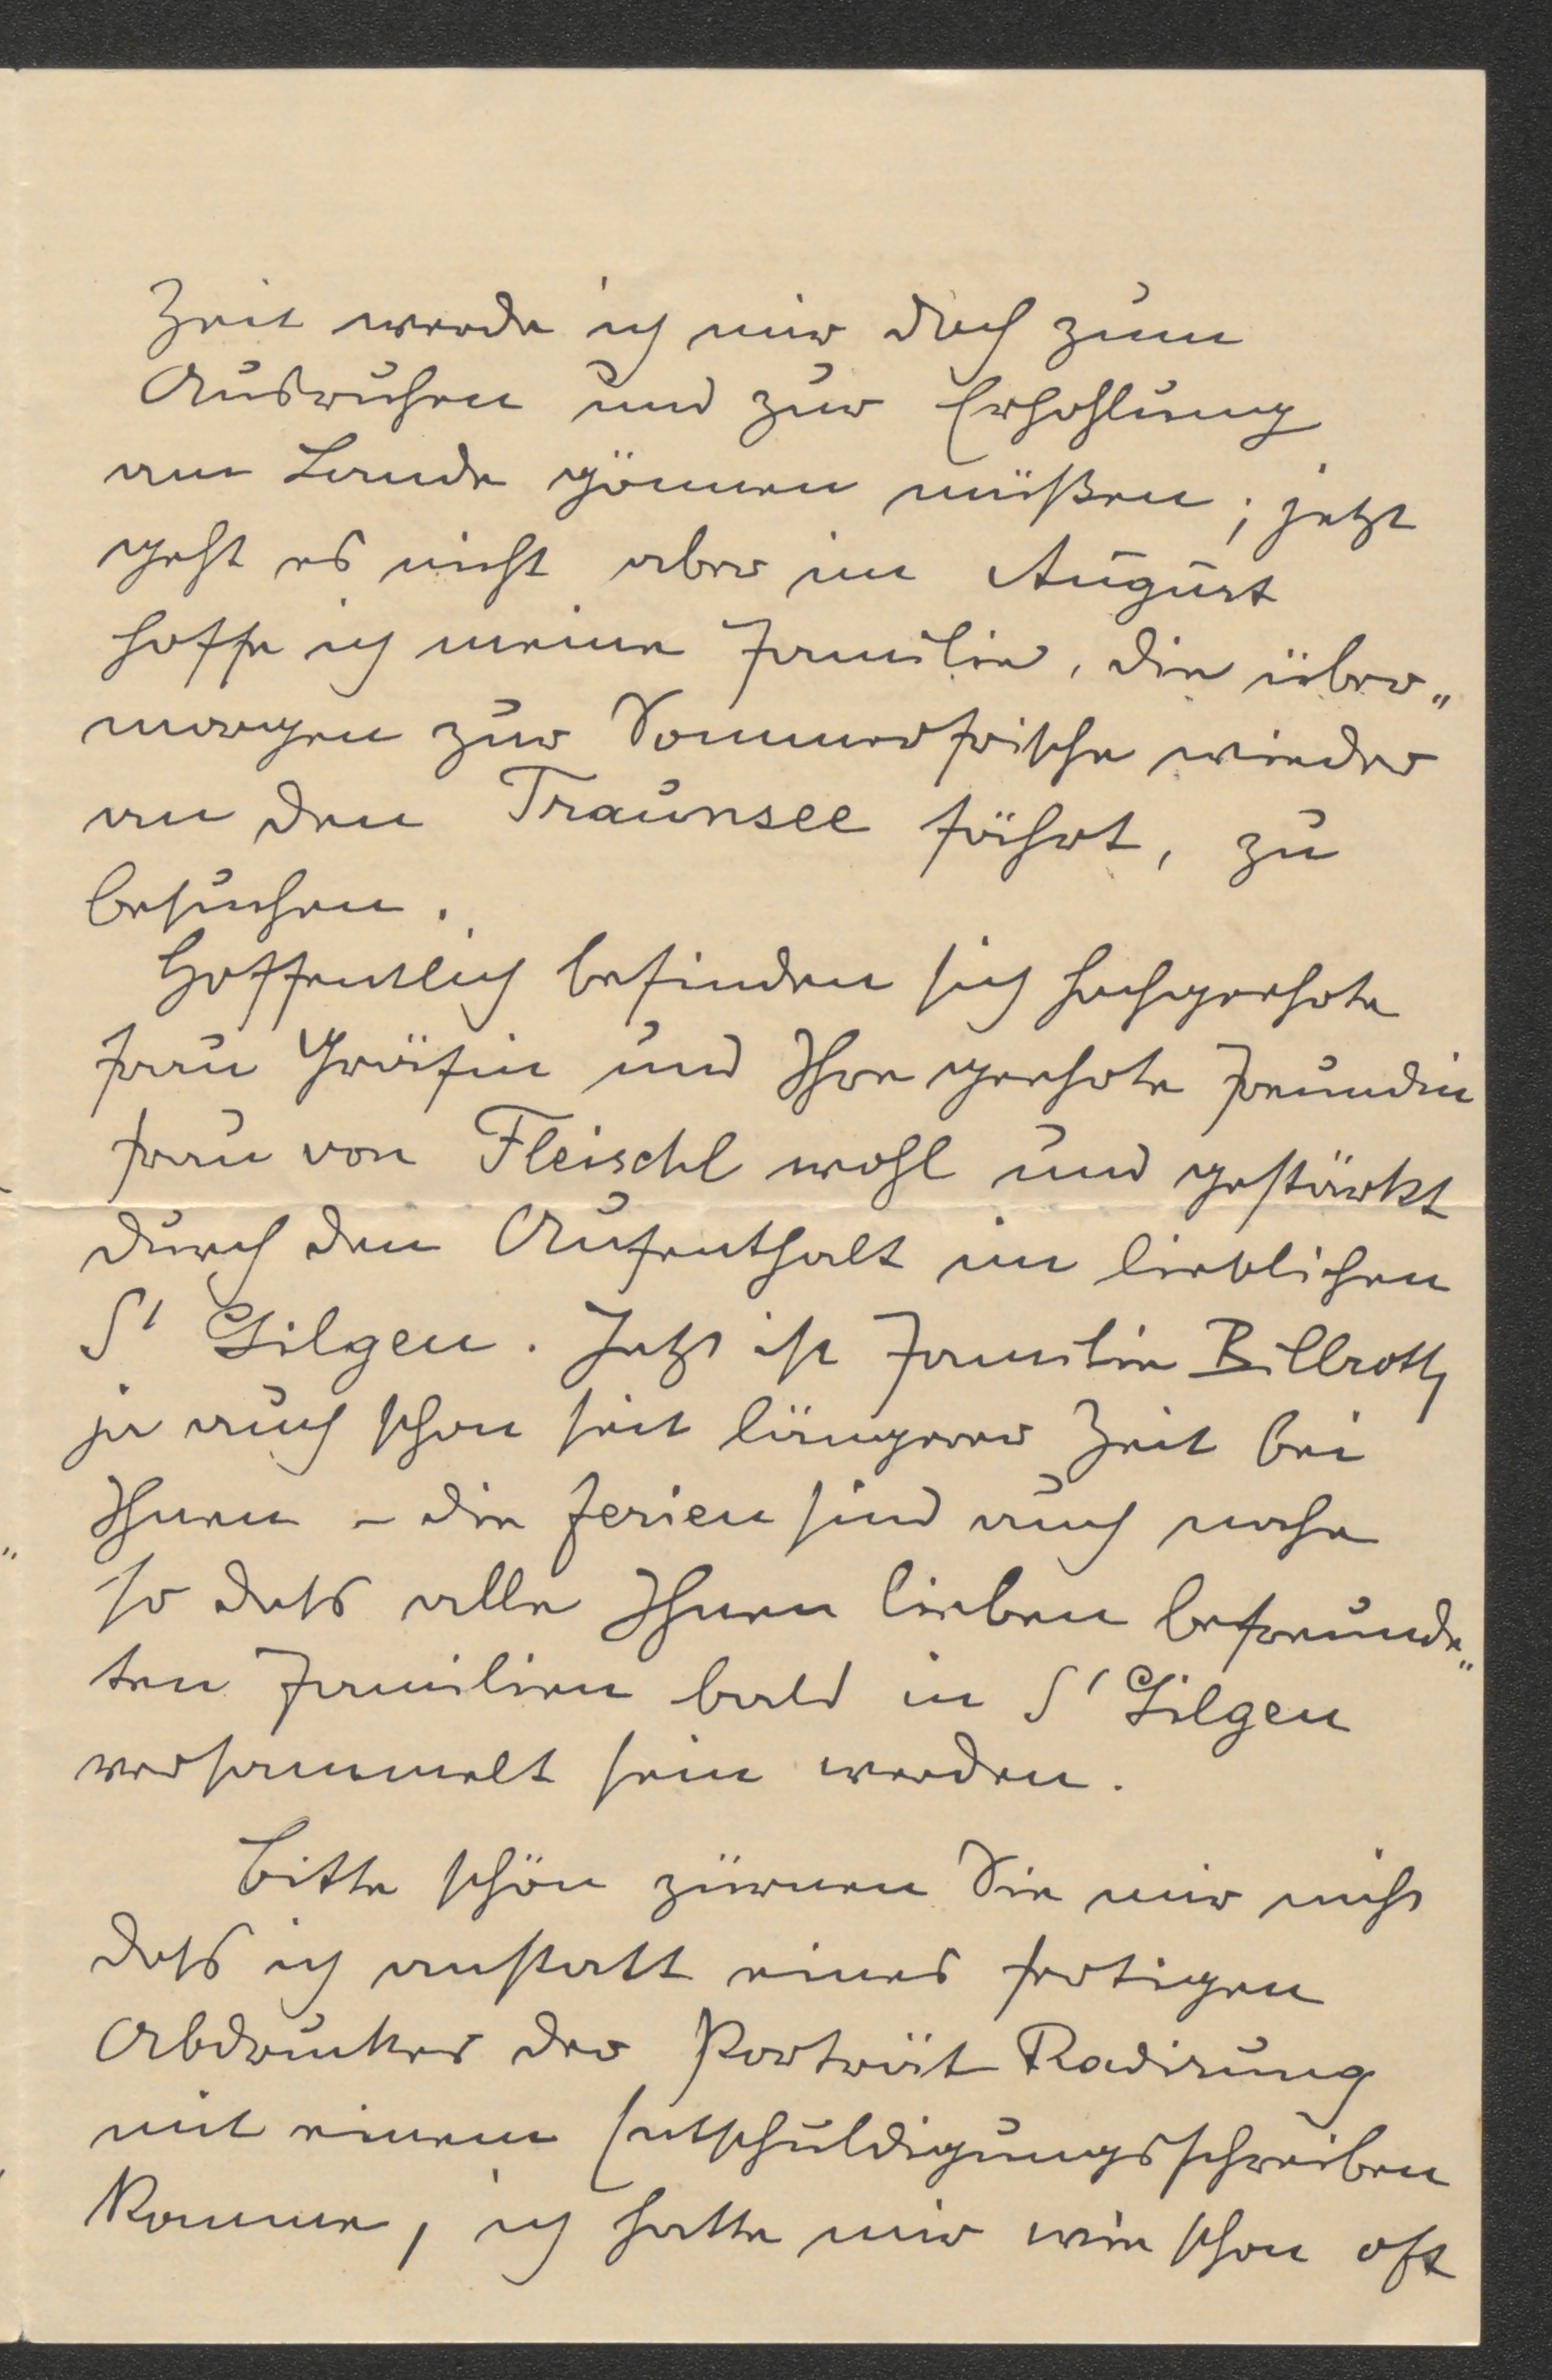 Zeit werde ich mir doch zum
Ausruhen und zur Erhohlung
am Lande gönnen müßen; jetzt
geht es nicht aber im August
hoffe ich meine Familie, die über„
morgen zur Sommerfrische wieder
an den Traunsee fährt, zu
besuchen.
Hoffentlich befinden sich hochgeehrte
Frau Gräfin und Ihre geehrte Freundin
Frau von Fleischl wohl und gestärkt
durch den Aufenthalt im lieblichen
St Gilgen. Jetzt ist Familie Billroth
ja auch schon seit längerer Zeit bei
Ihnen – die Ferien sind auch nahe
so dass alle Ihnen lieben befreunde„
ten Familien bald in St Gilgen
versammelt sein werden.
Bitte schön zürnen Sie mir nicht
dass ich anstatt eines fertigen
Abdruckes der Porträt Radirung
mit einem Entschuldigungsschreiben
komme, ich hatte mir wie schon oft